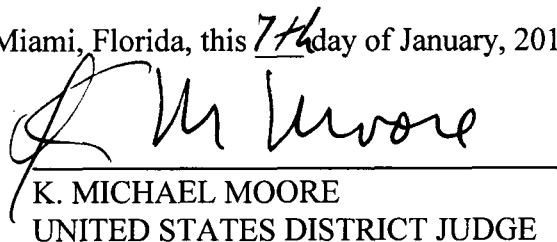 Miami, Florida, this 7th day of January, 201
K M Moore
K. MICHAEL MOORE
UNITED STATES DISTRICT JUDGE